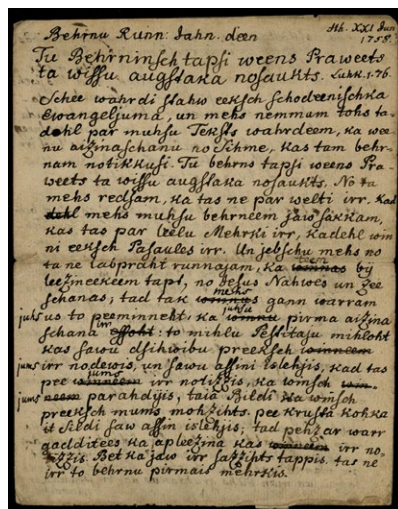 Behrnu Runn. Jahn. deen
Hh. XXI Jun
1755.
Tu Behrninsch tapsi weens Praweets
ta wissu augstaka nosaukts. Luhk. 1.76.
Schee wahrdi stahw eeksch schodeenischka
Ewangeljuma, un mehs nemmum tohs ta-
dehl par muhsu Teksts wahrdeem, ka wee
nu aizinaschanu no Sihme, kas tam behr-
nam notikkusi. Tu behrns tapsi weens Pra-
weets ta wissu augstaka nosaukts. No ta
mehs redsam, ka tas ne par welti irr. Kad
mehs muhsu behrneem jaw sakkam,
kas tas par leelu Mehrki irr, kadehl winni
ni eeksch Pasaules irr. Un jebschu mehs no
ta ne labpraht runnajam, ka teem bij
leezineekeem tapt, no Jesus Nahwes un Zee
schanas; tad tak mehs gann warram
juhs us to peeminneht: ka juhsu pirma aizina
schana irr: to mihlu Pestitaju mihloht
kas sawu dsihwibu preeksch
jums irr nodewis, un sawu assini islehjis, kad tas
pee jums irr notizzis, ka winsch
jums parahdijis, taia Bildi ka winsch
preeksch mums mohzihts pee krusta kohka
it Sirdi saw assin islehjis; tad pehz ar warr
gadditees ka apleezina kas irr no-
tizzis. Bet ka jaw irr sazzihts tappis. tas ne
irr to behrnu pirmais mehrkis.